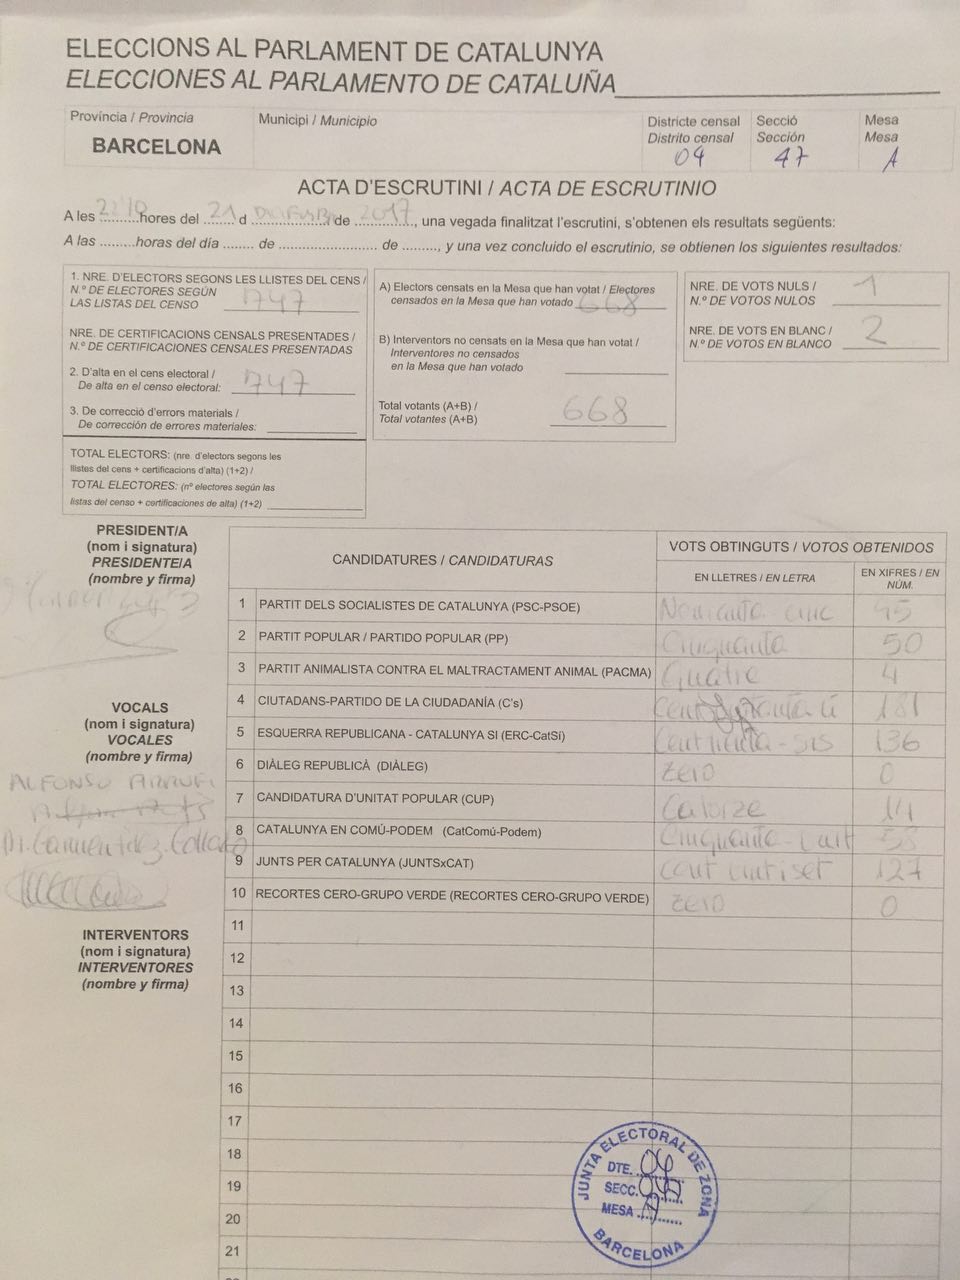 ELECCIONS AL PARLAMENT DE CATALUNYA
ELECCIONES AL PARLAMENTO DE CATALUÑA
Província / Provincia
BARCELONA
Municipi / Municipio
Districte censal
Distrito censal
04
Secció
Sección
47
Mesa
Mesa
A
ACTA D'ESCRUTINI / ACTA DE ESCRUTINIO
A les ......... hores del 21 d ......... de 2017, una vegada finalitzat l'escrutini, s'obtenen els resultats següents:
A las ......... horas del día ....... de ...................... de ........, y una vez concluido el escrutinio, se obtienen los siguientes resultados:
1. NRE. D'ELECTORS SEGONS LES LLISTES DEL CENS /
N.º DE ELECTORES SEGÚN
LAS LISTAS DEL CENSO 747
NRE. DE CERTIFICACIONS CENSALS PRESENTADES /
N.º DE CERTIFICACIONES CENSALES PRESENTADAS
2. D'alta en el cens electoral /
De alta en el censo electoral: 747
3. De correcció d'errors materials /
De corrección de errores materiales:
TOTAL ELECTORS: (nre. d'electors segons les
llistes del cens + certificacions d'alta) (1+2) /
TOTAL ELECTORES: (nº electores según las
listas del censo + certificaciones de alta) (1+2)
A) Electors censats en la Mesa que han votat / Electores
censados en la Mesa que han votado 668
B) Interventors no censats en la Mesa que han votat /
Interventores no censados
en la Mesa que han votado
Total votants (A+B) /
Total votantes (A+B) 668
NRE. DE VOTS NULS /
N.º DE VOTOS NULOS 1
NRE. DE VOTS EN BLANC /
N.º DE VOTOS EN BLANCO 2
PRESIDENT/A
(nom i signatura)
PRESIDENTE/A
(nombre y firma)
VOCALS
(nom i signatura)
VOCALES
(nombre y firma)
ALFONSO
INTERVENTORS
(nom i signatura)
INTERVENTORES
(nombre y firma)
CANDIDATURES / CANDIDATURAS
VOTS OBTINGUTS / VOTOS OBTENIDOS
EN LLETRES / EN LETRA
EN XIFRES / EN
NÚM.
1 PARTIT DELS SOCIALISTES DE CATALUNYA (PSC-PSOE) 95
2 PARTIT POPULAR / PARTIDO POPULAR (PP) Cinquanta 50
3 PARTIT ANIMALISTA CONTRA EL MALTRACTAMENT ANIMAL (PACMA) Quatre 4
4 CIUTADANS-PARTIDO DE LA CIUDADANÍA (C's) 181
5 ESQUERRA REPUBLICANA - CATALUNYA SI (ERC-CatSí) 136
6 DIÀLEG REPUBLICÀ (DIÀLEG) Zero 0
7 CANDIDATURA D'UNITAT POPULAR (CUP) Catorze 14
8 CATALUNYA EN COMÚ-PODEM (CatComú-Podem) Cinquanta-vuit 58
9 JUNTS PER CATALUNYA (JUNTSxCAT) cent vint i set 127
10 RECORTES CERO-GRUPO VERDE (RECORTES CERO-GRUPO VERDE) zero 0
11
12
13
14
15
16
17
18
19
20
21
JUNTA ELECTORAL DE ZONA
DTE. 04
SECC.
MESA A
BARCELONA